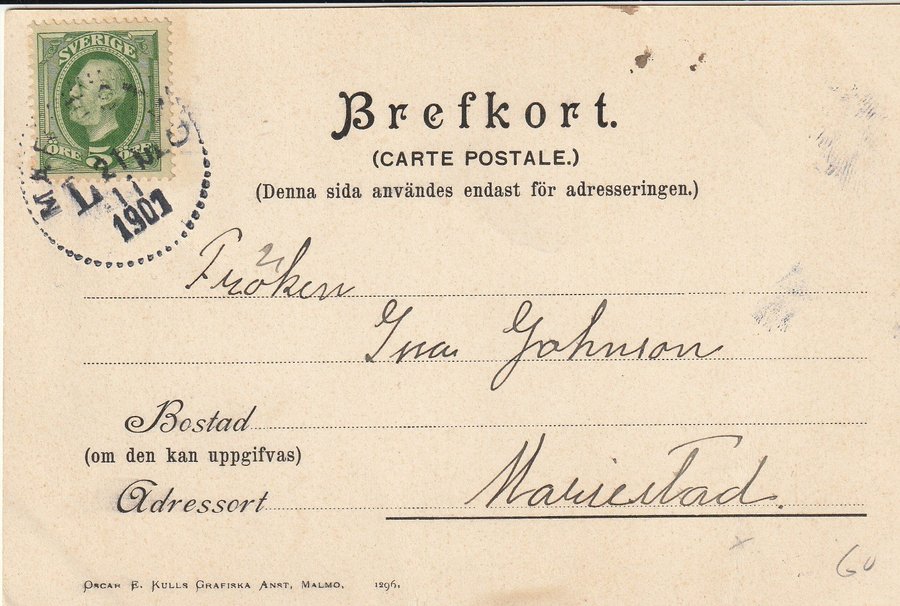 SVERIGE
5 ÖRE
1901
Brefkort.
(CARTE POSTALE.)
(Denna sida användes endast för adresseringen.)
Fröken
Johnson
Bostad
(om den kan uppgifvas)
Adressort Mariestad.
OSCAR E. KULLS GRAFISKA ANST, MALMO. 1296.